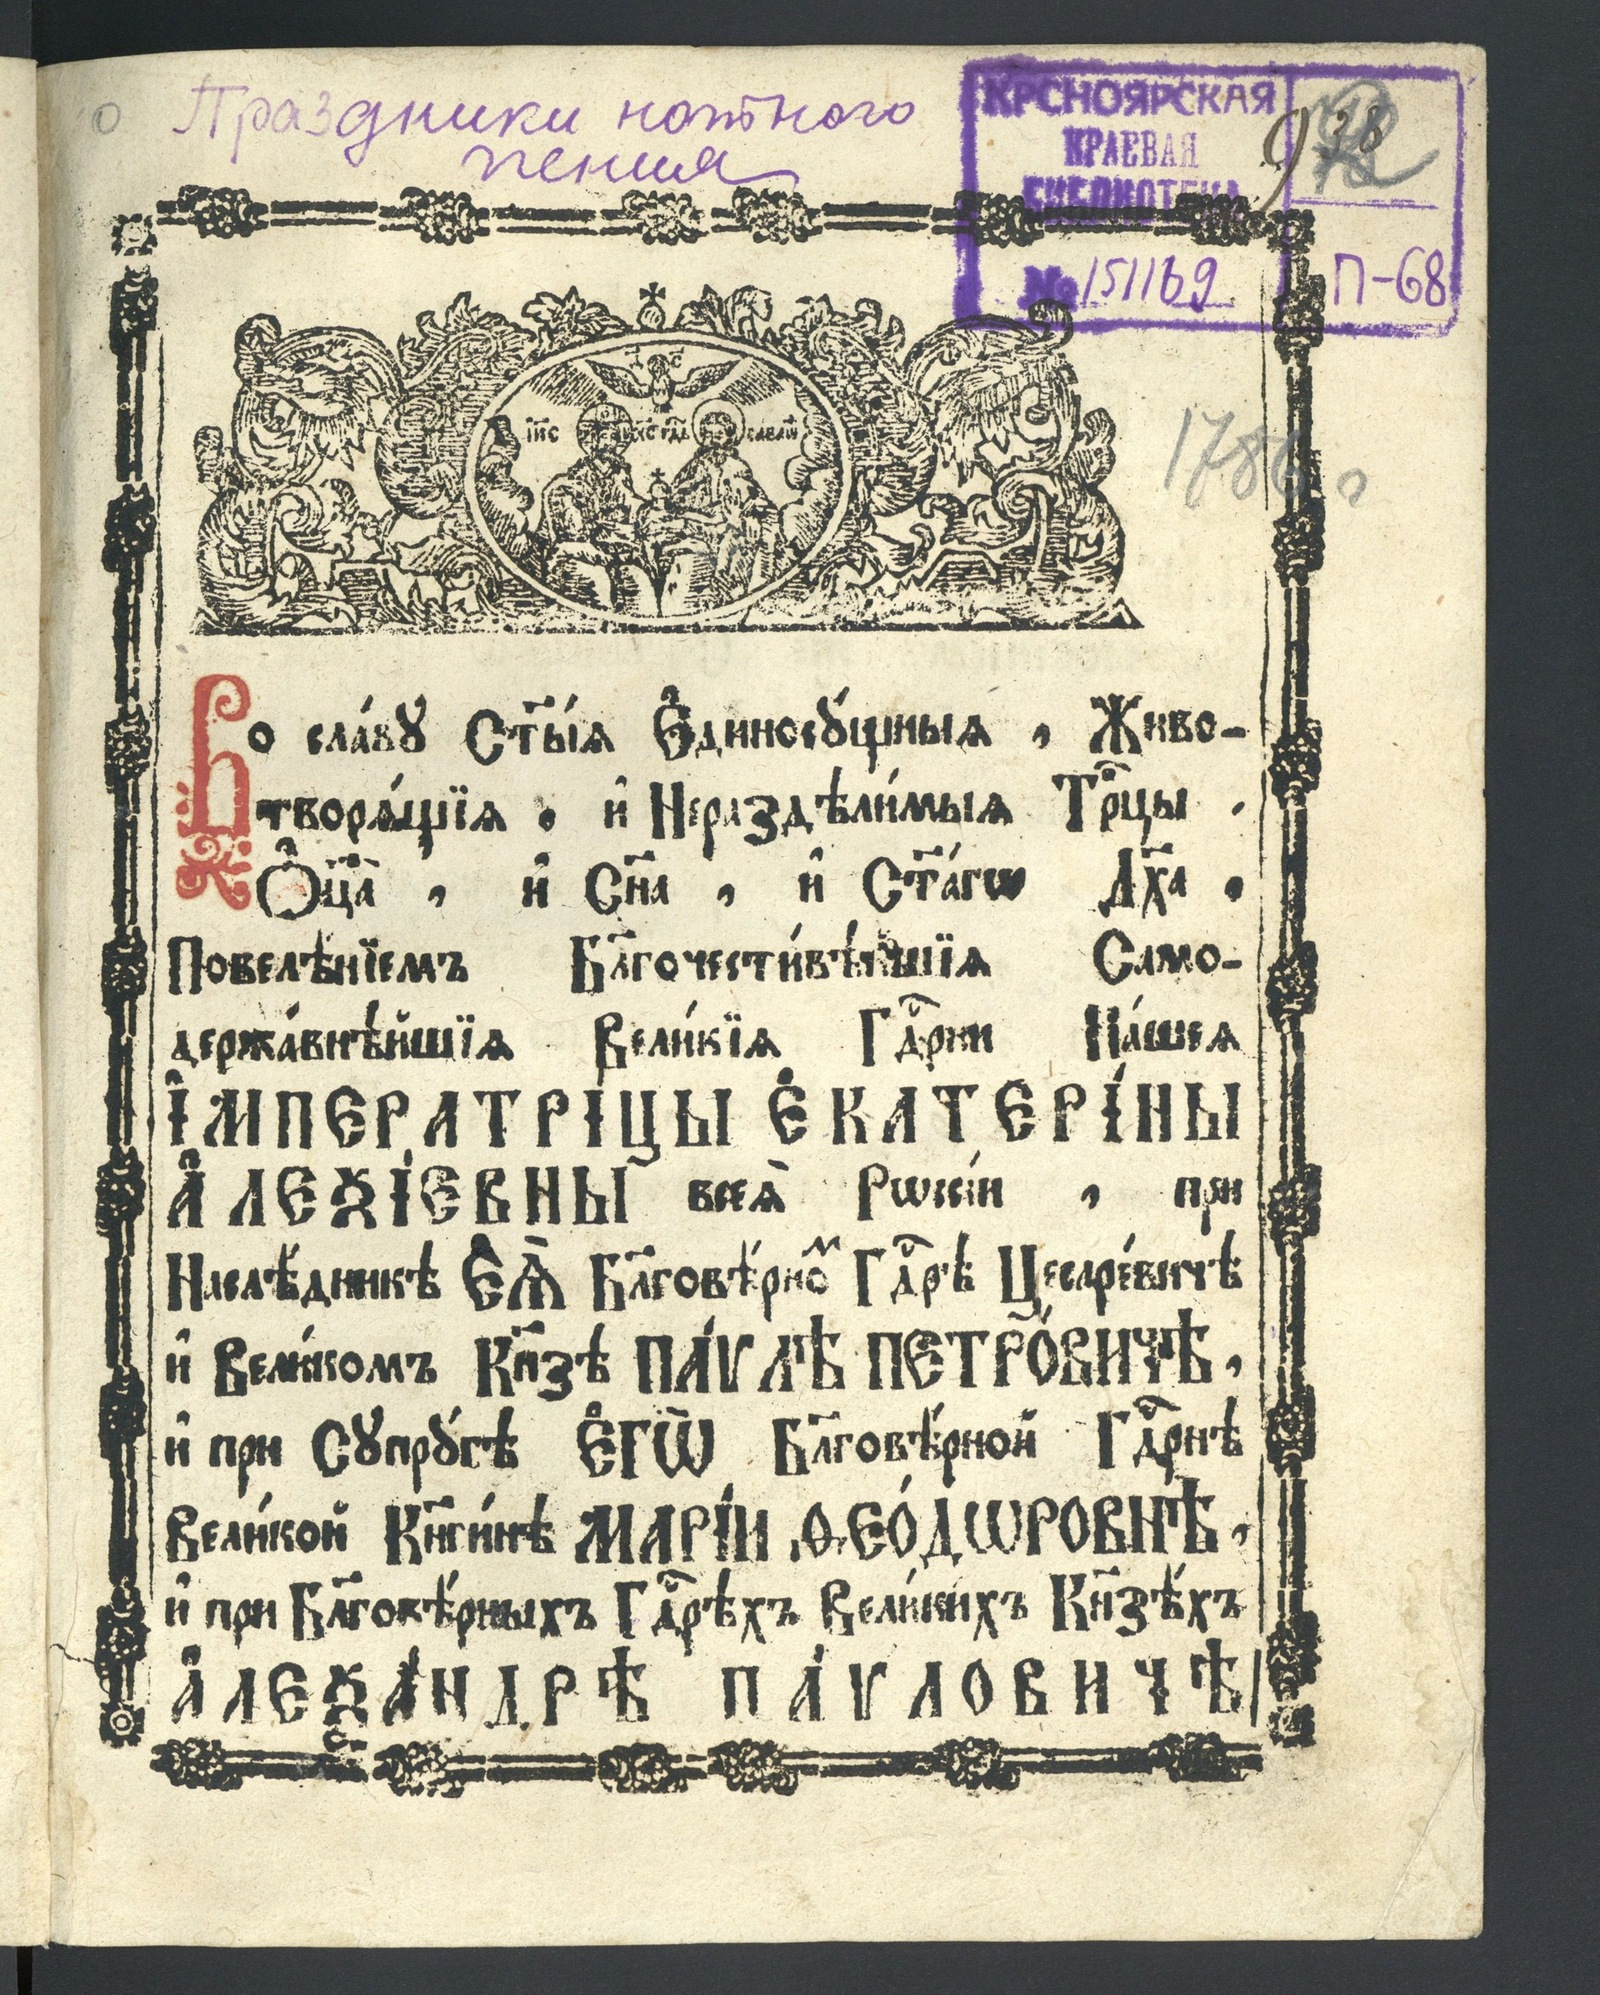 Праздники нотного
пения
КРСНОЯРСКАЯ
КРАЕВАЯ
БИБЛИОТЕКА
№ 151169
938
П-68
1786
І҃ИС
Х҃С
Во сла́вꙋ Ст҃ы́ѧ Є҆диносꙋ́щныѧ , Живо-
творѧ́щїѧ , и҆ Нераздѣли́мыѧ Трⷪ҇цы ,
Ѻ҆ц҃а̀ , и҆ Сн҃а , и҆ Ст҃а́гѡ Дх҃а ,
Повелѣ́нїемъ Бл҃гочести́вѣйшїѧ Само-
держа́внѣйшїѧ Вели́кїѧ Гдⷭ҇рни На́шеѧ
І҆МПЕРАТРІ́ЦЫ Є҆КАТЕРІ́НЫ
А҆ЛЕѮІ́ЕВНЫ всеѧ̀ Рѡссі́и , при
Наслѣ́дникѣ Є҆Ѧ̀ Бл҃говѣ́рноⷨ Гдⷭ҇рѣ Цесаре́вичѣ
и҆ Вели́комъ Кн҃зѣ ПА́ѴЛѢ ПЕТРО́ВИЧѢ ,
и҆ при Сꙋпрꙋ́гѣ Є҆ГѠ̀ Бл҃говѣ́рной Гдⷭ҇рнѣ
Вели́кой Кн҃ги́нѣ МАРІ́И ѲЕО́ДѠРОВНѢ ,
и҆ при Бл҃говѣ́рныхъ Гдⷭ҇рѣхъ Вели́кихъ Кн҃зѣ́хъ
А҆ЛЕѮА́НДРѢ ПА́ѴЛОВИЧѢ